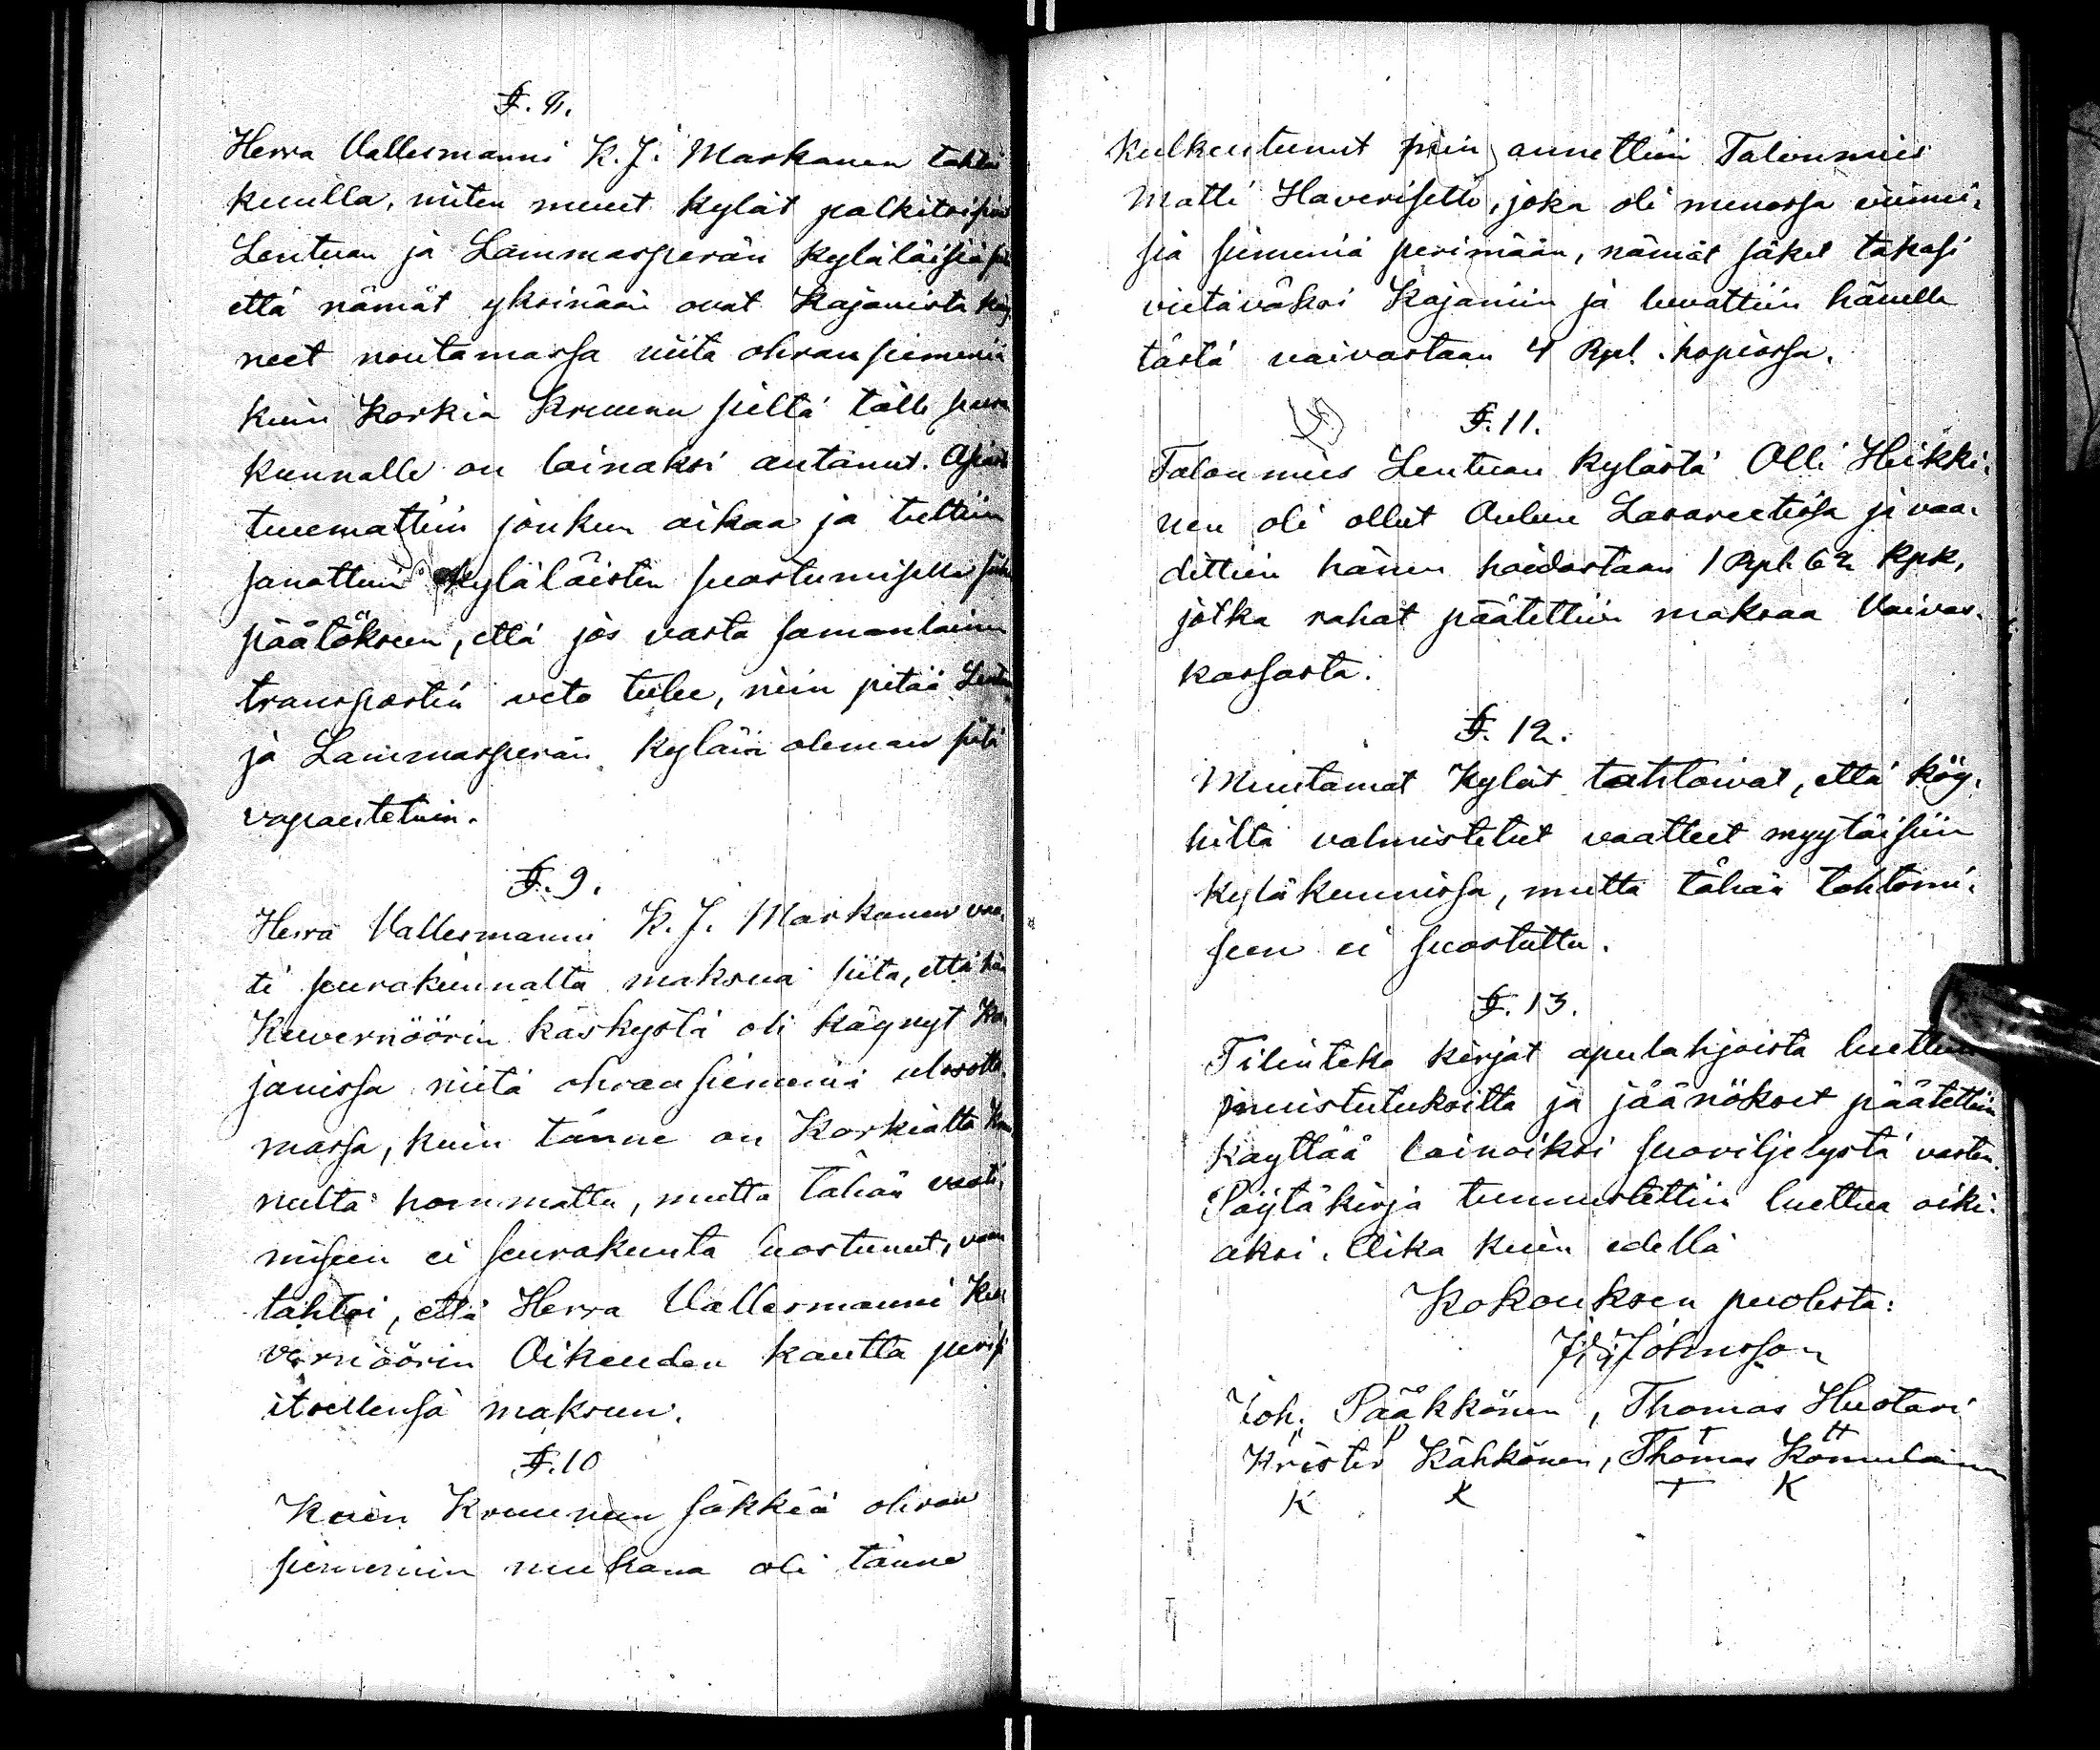 §. 8.
Herra Vallesmanni K. J. Markanen tahtoi
kuulla, miten muut kylät palkitsisiwat
Lentuan ja Lammasperän kyläläisiä
että nämät yksinään ovat Kajanista käy-
neet noutamassa niitä ohran siemeniä
kuin Korkia Kruunu sieltä tälle seura
kunnalle on lainaksi antanut. Asiata
tuumattiin jonkun aikaa ja tultiin
sanottuin kyläläisten suostumisella
päätökseen, että jos vasta samanlainen
transportin veto tulee, niin pitää
ja Lammasperän kylään oleman siitä
vapautetuin.
§. 9.
Herra Vallesmanni K. J. Markanen vaa-
ti seurakunnalta maksua siitä, että hän
Kuvernöörin käskystä oli käynyt Ka-
janissa niitä ohran siemeniä ulosotta-
massa, kuin tänne on Korkialta Kruu-
nulta hommattu, mutta tähän vaati-
miseen ei seurakunta suostunut, vaan
tahtoi, että Herra Vallesmanni Ku-
vernöörin Oikeuden kautta perisi
itsellensä maksun.
§. 10
Kuin Kruunun säkkiä ohran
siemenien mukana oli tänne
kulkeutunut niin annettiin Talonmies
Matti Haveriselle, joka oli menossa viimei-
siä siemeniä perimään, nämät säkit takasi
vietäväksi Kajaniin ja luvattiin hänelle
tästä vaivastaan 4 Rpl. hopiassa.
§. 11.
Talonmies Lentuan kylästä Olli Heikki-
nen oli ollut Oulun Lasareetissa ja vaa-
dittiin hänen hoidostaan 1 Rpl. 62 Kpk,
jotka rahat päätettiin maksaa Vaivas-
kassasta.
§. 12.
Muutamat Kylät tahtoivat, että köy-
hiltä valmistetut vaatteet myytäisiin
kyläkunnissa, mutta tähän tahtomi-
seen ei suostuttu.
§. 13.
Tilinteko kirjat apulahjoista luettiin
muistutuksitta ja jäänökset päätettiin
käyttää lainoiksi suoviljelystä vasten.
Pöytäkirja tunnustettiin luettua oiki-
aksi. Aika kuin edellä
Kokouksen puolesta:
Johnsson
Joh. Pääkkönen, Thomas Huotari
P T H
Krister Kähkönen, Thomas Komulainen
K K T K